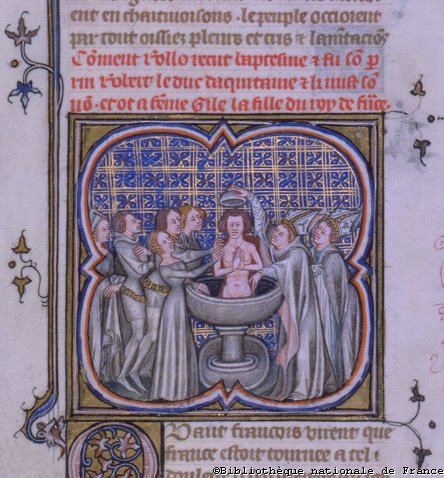 ent en chaitiuoisons. le peuple occioient
par tout oussiez pleurs et cris & lamentacions
Coment rollo recut baptesme & fu son p
rin robert le duc daquitaine & li mist son
non. et ot a feme Gile la fille du roy de fnce.
Quant francois virent que
france estoit tournee a tel
©Bibliothèque nationale de France